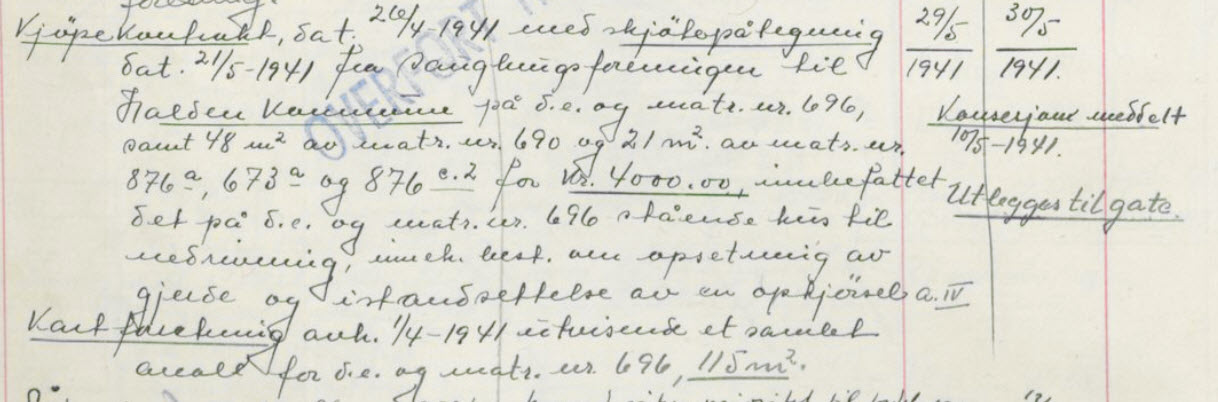 Kjöpekontrakt, dat. 26/4-1941 med skjötepåtegning
dat. 21/5-1941 fra Sanglungsforeningen til
Halden Kommune på d.e. og matr. nr. 696,
samt 48 m² av matr. nr. 690 og 21 m². av matr. nr.
876 a, 673 a og 876 c.2 for Kr. 4000.00, innbefattet
det på d.e. og matr. nr. 696 stående hus til
nedrivning, inneh. best. om opsetning av
gjerde og istandsettelse av en opkjörsel a. IV
Kartforretning avh. 1/4-1941 utvisende et samlet
areal for d.e. og matr. nr. 696, 115 m².
29/5
1941
30/5
1941.
Konsesjon meddelt
10/5-1941.
Utlegges til gate.
OVERFÖRT